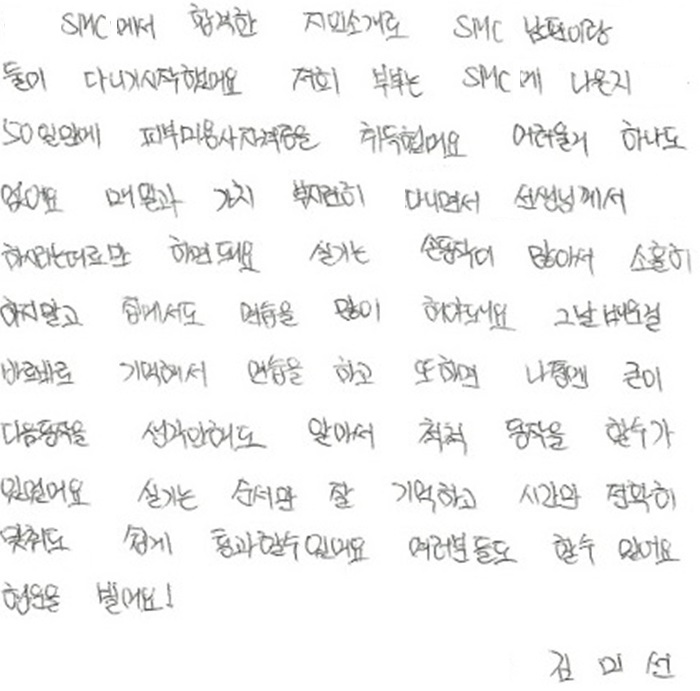 SMC에서 합격한 지인소개로 SMC 남편이랑
둘이 다니기시작했어요 저희 부부는 SMC에 나온지
50일만에 피부미용사자격증을 취득했어요 어려울게 하나도
없어요 매일과 가치 부지런히 다니면서 선생님께서
하시라는데로만 하면 되요 실기는 손동작이 많아서 소홀히
하지말고 집에서도 연습을 많이 해야되요 그날 배운걸
바로바로 기억해서 연습을 하고 또하면 나중엔 굳이
다음동작을 생각안해도 알아서 척척 동작을 할수가
있었어요 실기는 순서만 잘 기억하고 시간만 정확히
맞춰도 쉽게 통과할수있어요 여러분들도 할수 있어요
행운을 빌어요!
김미선